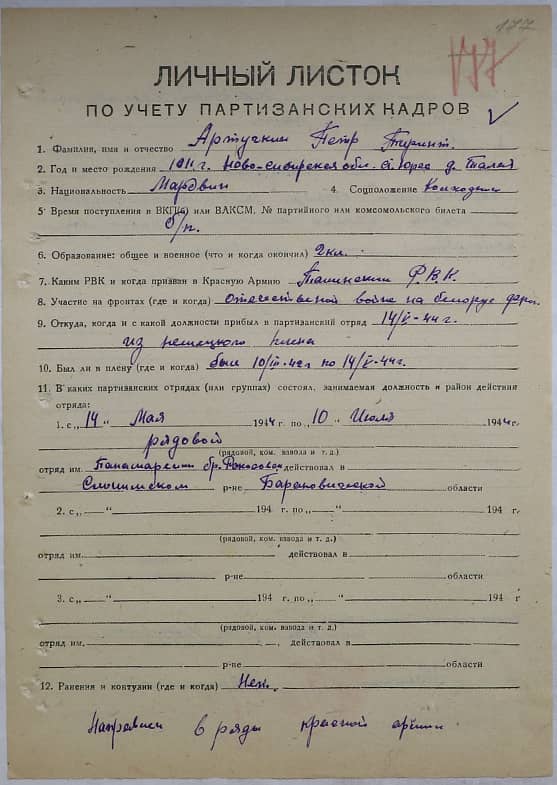 177
177
ЛИЧНЫЙ ЛИСТОК
ПО УЧЕТУ ПАРТИЗАНСКИХ КАДРОВ
1. Фамилия, имя и отчество Артучкин Петр
2. Год и место рождения 1911 г. Ново-Сибирская обл. д. Талая
3. Национальность Мардвин 4. Соцположение Колхозник
5. Время поступления в ВКП(б) или ВЛКСМ, № партийного или комсомольского билета
б/п.
6. Образование: общее и военное (что и когда окончил) 2 кл.
7. Каким РВК и когда призван в Красную Армию Р.В.К.
8. Участие на фронтах (где и когда) отечественной войне на белорус
9. Откуда, когда и с какой должности прибыл в партизанский отряд 14/V-44 г.
из немецкого плена
10. Был ли в плену (где и когда) был 10/III-42 г по 14/V-44 г.
11. В каких партизанских отрядах (или группах) состоял, занимаемая должность и район действия
отряда:
1. с „14" Мая 1944 г. по „10" Июля 1944 г.
рядовой
(рядовой, ком. взвода и т. д.)
отряд им. бр. действовал в
Слонимском р-не Барановичской области
2. с „ " 194 г. по „ " 194 г.
(рядовой, ком. взвода и т. д.)
отряд им. действовал в
р-не области
3. с „ " 194 г. по „ " 194 г
(рядовой, ком. взвода и т. д.)
отряд им. действовал в
р-не области
12. Ранения и контузии (где и когда) Нет.
в ряды красной армии